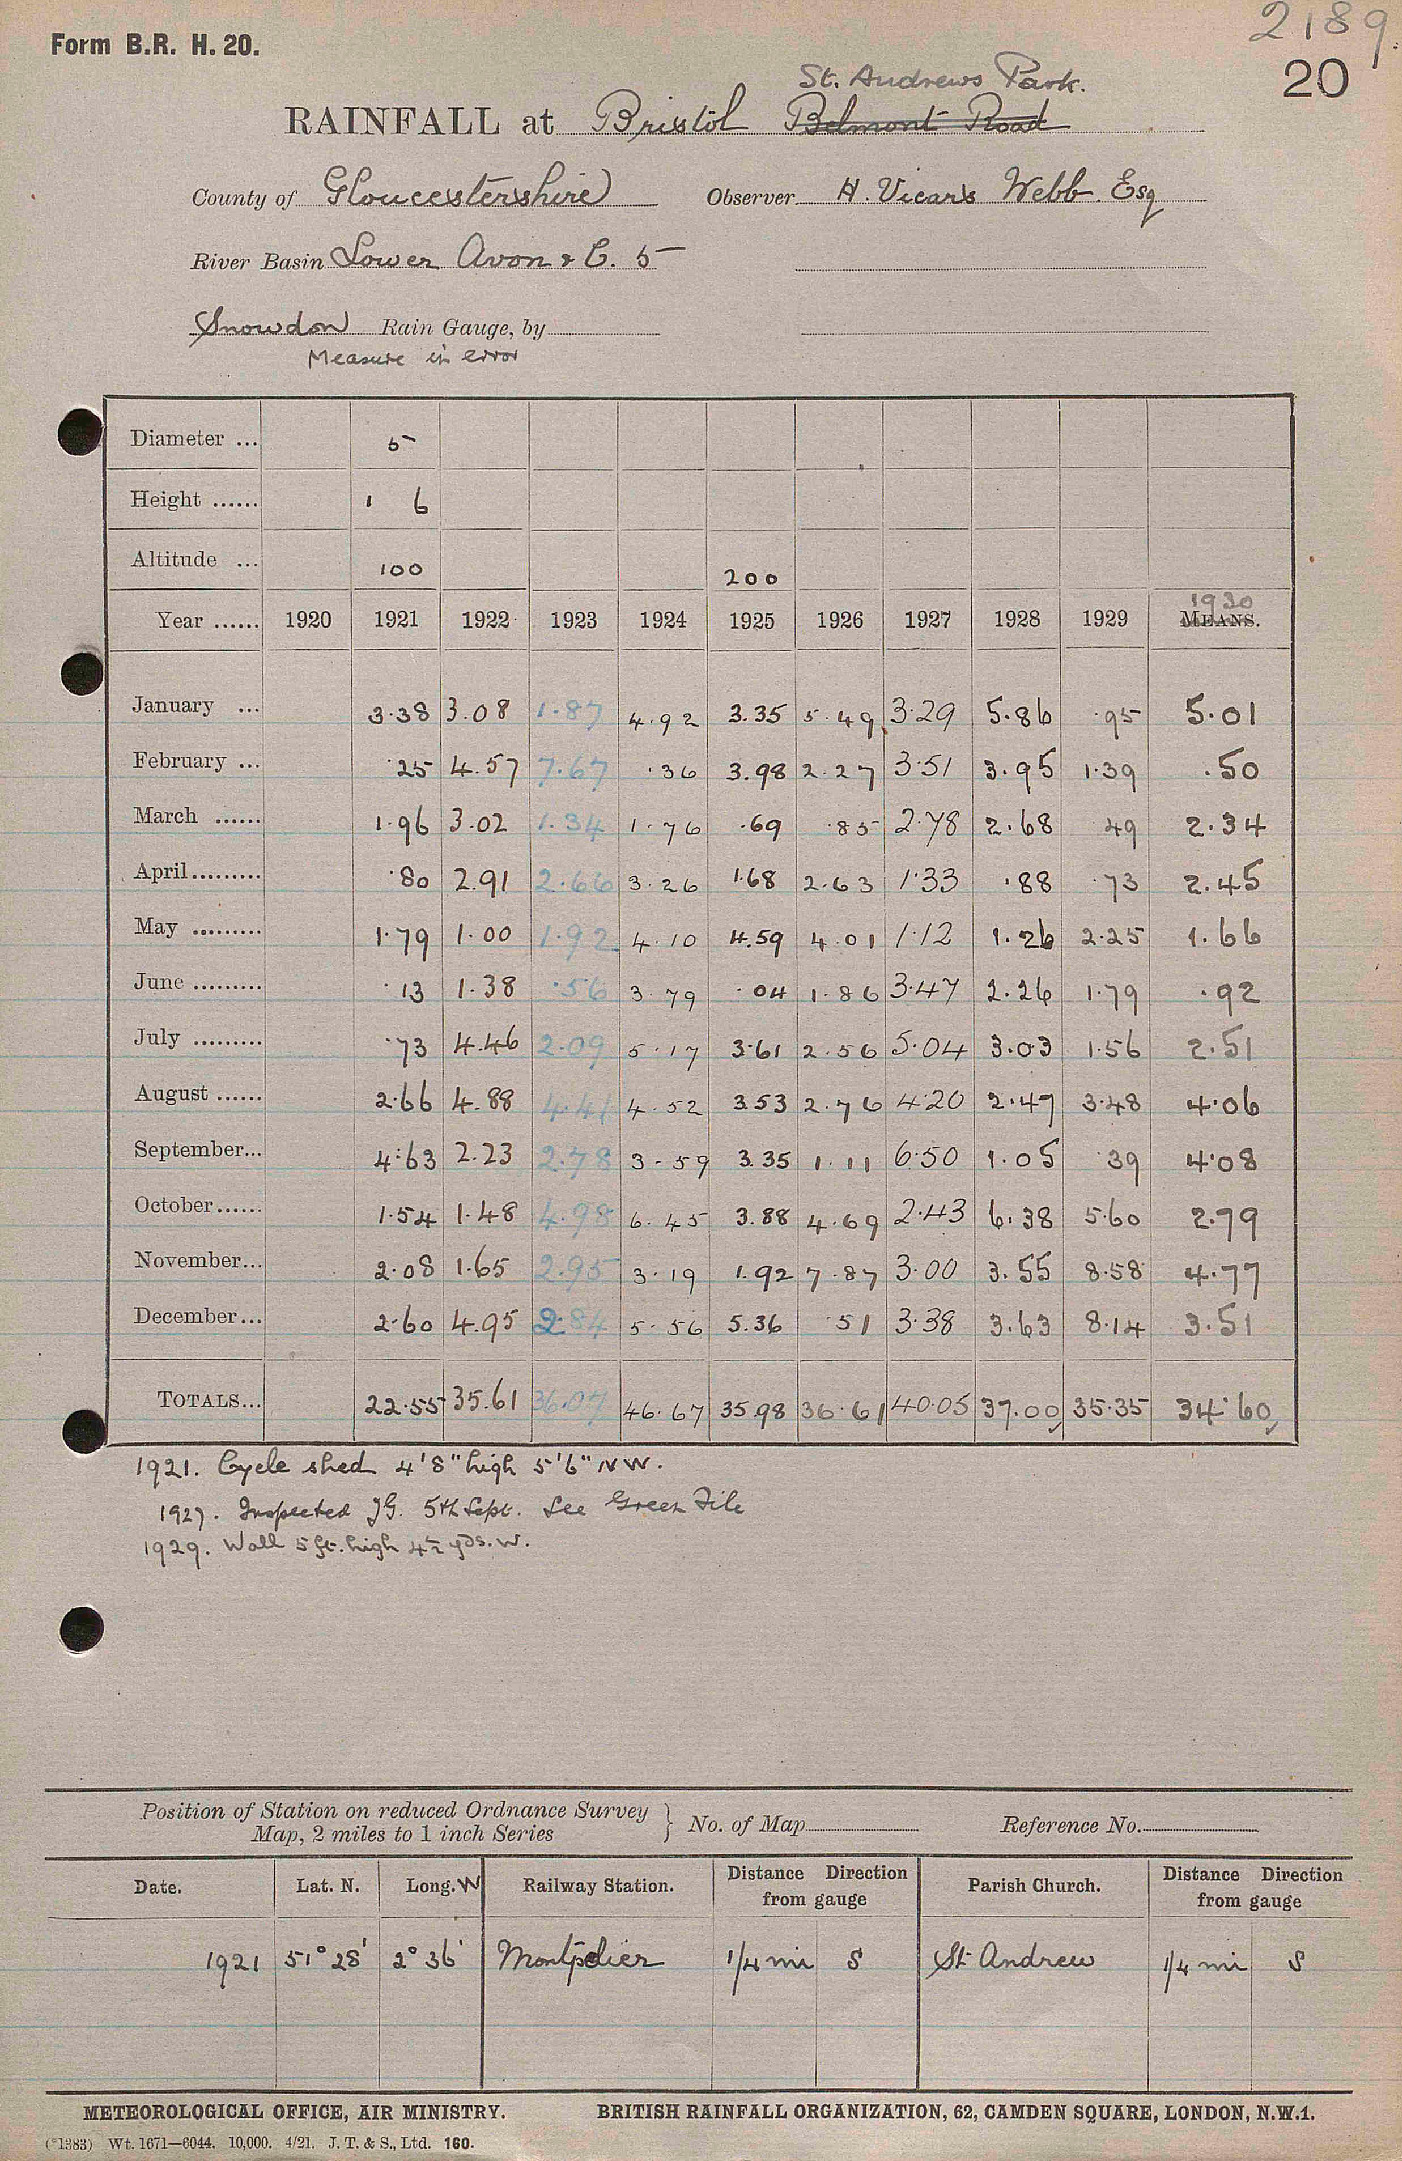 2189.
Form B.R. H. 20.
20
St. Andrews Park.
RAINFALL at Bristol Belmont Road
County of Gloucestershire Observer H. Vicars Webb Esq
River Basin Lower Avon & C. 5
Snowdon Rain Gauge, by
Measure in error
Diameter ... 5
Height ...... 1 6
Altitude ... 100 200
1930
Year ...... 1920 1921 1922 1923 1924 1925 1926 1927 1928 1929 MEANS.
January ... 3.38 3.08 1.87 4.92 3.35 5.49 3.29 5.86 .95 5.01
February ... .25 4.57 7.67 .36 3.98 2.27 3.51 3.95 1.39 .50
March ...... 1.96 3.02 1.34 1.76 .69 .85 2.78 2.68 .49 2.34
April ......... .80 2.91 2.66 3.26 1.68 2.63 1.33 .88 .73 2.45
May ......... 1.79 1.00 1.92 4.10 4.59 4.01 1.12 1.26 2.25 1.66
June ......... .13 1.38 .56 3.79 .04 1.86 3.47 2.26 1.79 .92
July ......... .73 4.46 2.09 5.17 3.61 2.56 5.04 3.03 1.56 2.51
August ...... 2.66 4.88 4.41 4.52 3.53 2.76 4.20 2.47 3.48 4.06
September... 4.63 2.23 2.78 3.59 3.35 1.11 6.50 1.05 .39 4.08
October ...... 1.54 1.48 4.98 6.45 3.88 4.69 2.43 6.38 5.60 2.79
November... 2.08 1.65 2.95 3.19 1.92 7.87 3.00 3.55 8.58 4.77
December... 2.60 4.95 2.84 5.56 5.36 .51 3.38 3.63 8.14 3.51
TOTALS... 22.55 35.61 36.07 46.67 35.98 36.61 40.05 37.00 35.35 34.60
1921. Cycle shed 4'8" high 5'6" NW.
1927. Inspected JG. 5th Sept. See Green File
1929. Wall 5 ft. high 4½ yds. W.
Position of Station on reduced Ordnance Survey
Map, 2 miles to 1 inch Series } No. of Map Reference No.
Date. Lat. N. Long. W Railway Station. Distance Direction from gauge Parish Church. Distance Direction from gauge
1921 51° 28' 2° 36' Montpelier 1/4 mi S St Andrew 1/4 mi S
METEOROLOGICAL OFFICE, AIR MINISTRY. BRITISH RAINFALL ORGANIZATION, 62, CAMDEN SQUARE, LONDON, N.W.1.
(*1383) Wt. 1671—6044. 10,000. 4/21. J. T. & S., Ltd. 160.